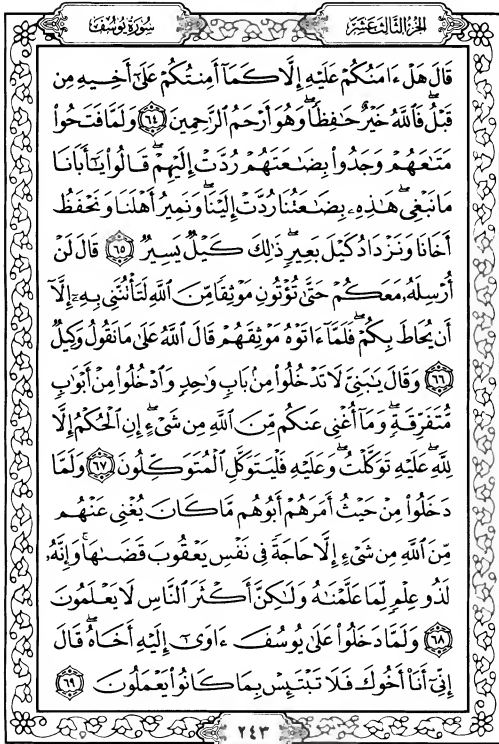 سُورَةُ يُوسُفَ
الجُزْءُ الثَّالِثَ عَشَرَ
قَالَ هَلْ ءَامَنُكُمْ عَلَيْهِ إِلَّا كَمَآ أَمِنتُكُمْ عَلَىٰٓ أَخِيهِ مِن
قَبْلُ ۖ فَٱللَّهُ خَيْرٌ حَـٰفِظًا ۖ وَهُوَ أَرْحَمُ ٱلرَّٰحِمِينَ ٦٤ وَلَمَّا فَتَحُوا۟
مَتَـٰعَهُمْ وَجَدُوا۟ بِضَـٰعَتَهُمْ رُدَّتْ إِلَيْهِمْ ۖ قَالُوا۟ يَـٰٓأَبَانَا
مَا نَبْغِى ۖ هَـٰذِهِۦ بِضَـٰعَتُنَا رُدَّتْ إِلَيْنَا ۖ وَنَمِيرُ أَهْلَنَا وَنَحْفَظُ
أَخَانَا وَنَزْدَادُ كَيْلَ بَعِيرٍ ۖ ذَٰلِكَ كَيْلٌ يَسِيرٌ ٦٥ قَالَ لَنْ
أُرْسِلَهُۥ مَعَكُمْ حَتَّىٰ تُؤْتُونِ مَوْثِقًا مِّنَ ٱللَّهِ لَتَأْتُنَّنِى بِهِۦٓ إِلَّآ
أَن يُحَاطَ بِكُمْ ۖ فَلَمَّآ ءَاتَوْهُ مَوْثِقَهُمْ قَالَ ٱللَّهُ عَلَىٰ مَا نَقُولُ وَكِيلٌ
٦٦ وَقَالَ يَـٰبَنِىَّ لَا تَدْخُلُوا۟ مِنۢ بَابٍ وَٰحِدٍ وَٱدْخُلُوا۟ مِنْ أَبْوَٰبٍ
مُّتَفَرِّقَةٍ ۖ وَمَآ أُغْنِى عَنكُم مِّنَ ٱللَّهِ مِن شَىْءٍ ۖ إِنِ ٱلْحُكْمُ إِلَّا
لِلَّهِ ۖ عَلَيْهِ تَوَكَّلْتُ ۖ وَعَلَيْهِ فَلْيَتَوَكَّلِ ٱلْمُتَوَكِّلُونَ ٦٧ وَلَمَّا
دَخَلُوا۟ مِنْ حَيْثُ أَمَرَهُمْ أَبُوهُم مَّا كَانَ يُغْنِى عَنْهُم
مِّنَ ٱللَّهِ مِن شَىْءٍ إِلَّا حَاجَةً فِى نَفْسِ يَعْقُوبَ قَضَىٰهَا ۚ وَإِنَّهُۥ
لَذُو عِلْمٍ لِّمَا عَلَّمْنَـٰهُ وَلَـٰكِنَّ أَكْثَرَ ٱلنَّاسِ لَا يَعْلَمُونَ
٦٨ وَلَمَّا دَخَلُوا۟ عَلَىٰ يُوسُفَ ءَاوَىٰٓ إِلَيْهِ أَخَاهُ ۖ قَالَ
إِنِّىٓ أَنَا۠ أَخُوكَ فَلَا تَبْتَئِسْ بِمَا كَانُوا۟ يَعْمَلُونَ ٦٩
٢٤٣